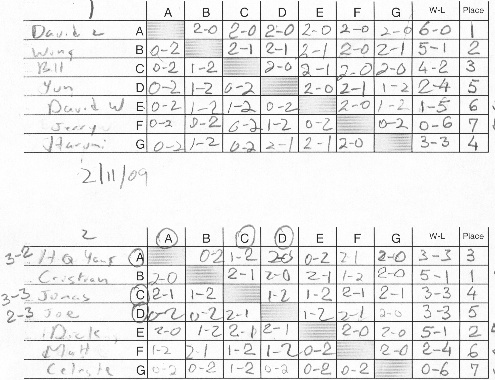 1
A B C D E F G W-L Place
David L A 2-0 2-0 2-0 2-0 2-0 2-0 6-0 1
Wong B 0-2 2-1 2-1 2-1 2-0 2-1 5-1 2
Bill C 0-2 1-2 2-0 2-1 2-0 2-0 4-2 3
Yun D 0-2 1-2 0-2 2-0 2-1 1-2 2-4 5
David W E 0-2 1-2 1-2 0-2 2-0 1-2 1-5 6
Jerry F 0-2 0-2 0-2 1-2 0-2 0-2 0-6 7
Harumi G 0-2 1-2 0-2 2-1 2-1 2-0 3-3 4
2/11/09
2
A B C D E F G W-L Place
3-2 H Q Yang A 0-2 1-2 2-0 0-2 2 1 2-0 3-3 3
Cristian B 2-0 2-1 2-0 2-1 1-2 2-0 5-1 1
3-3 Jonas C 2-1 1-2 1-2 1-2 2-1 2-1 3-3 4
2-3 Joe D 0-2 0-2 2-1 1-2 2-1 2-0 3-3 5
Dick E 2-0 1-2 2-1 2-1 2-0 2-0 5-1 2
Matt F 1-2 2-1 1-2 1-2 0-2 2-0 2-4 6
Celeste G 0-2 0-2 1-2 0-2 0-2 0-2 0-6 7